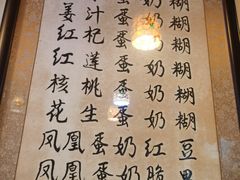 姜汁蛋奶糊
红杞蛋奶糊
红莲蛋奶糊
核桃蛋奶糊
花生蛋奶糊
凤凰蛋奶红豆
凤凰蛋奶